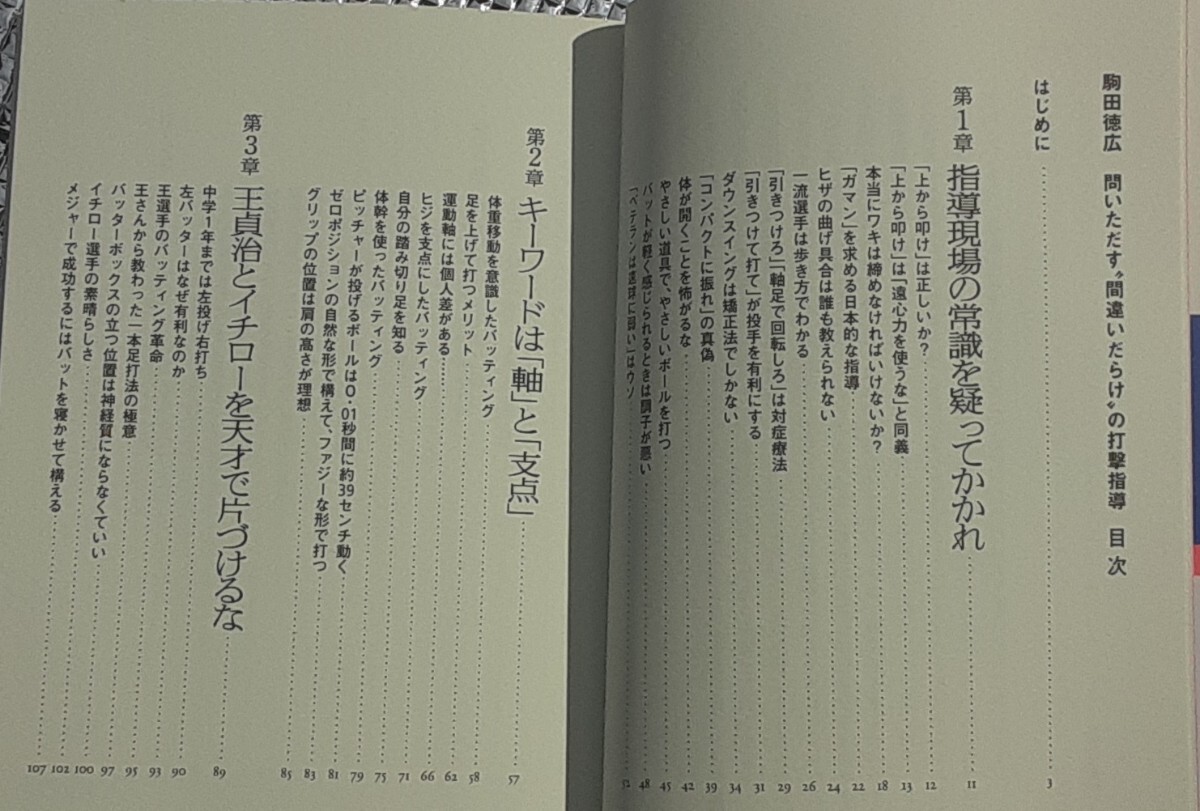 駒田徳広 問いただす〝間違いだらけ〟の打撃指導 目次
はじめに 3
第1章 指導現場の常識を疑ってかかれ 11
「上から叩け」は正しいか? 12
「上から叩け」は「遠心力を使うな」と同義 13
本当にワキは締めなければいけないか? 18
「ガマン」を求める日本的な指導 22
ヒザの曲げ具合は誰も教えられない 24
一流選手は歩き方でわかる 26
「引きつけろ」「軸足で回転しろ」は対症療法 29
「引きつけて打て」が投手を有利にする 31
ダウンスイングは矯正法でしかない 34
「コンパクトに振れ」の真偽 39
体が開くことを怖がるな 42
やさしい道具で、やさしいボールを打つ 45
バットが軽く感じられるときは調子が悪い 48
「ベテランは速球に弱い」はウソ 52
第2章 キーワードは「軸」と「支点」 57
体重移動を意識したバッティング 58
足を上げて打つメリット 62
運動軸には個人差がある 66
ヒジを支点にしたバッティング 71
自分の踏み切り足を知る 75
体幹を使ったバッティング 79
ピッチャーが投げるボールは0・01秒間に約39センチ動く 81
ゼロポジションの自然な形で構えて、ファジーな形で打つ 83
グリップの位置は肩の高さが理想 85
第3章 王貞治とイチローを天才で片づけるな 89
中学1年までは左投げ右打ち 90
左バッターはなぜ有利なのか 93
王選手のバッティング革命 95
王さんから教わった一本足打法の極意 97
バッターボックスの立つ位置は神経質にならなくていい 100
イチロー選手の素晴らしさ 102
メジャーで成功するにはバットを寝かせて構える 107